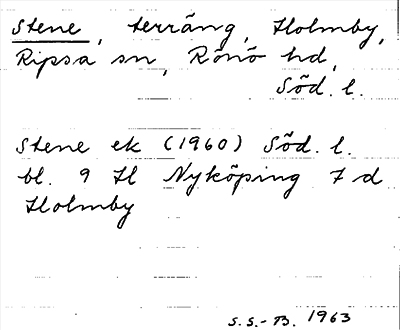 Stene, terräng, Holmby,
Ripsa sn, Rönö hd,
Söd. l.
Stene ek (1960) Söd. l.
bl. 9 H Nyköping 7 d
Holmby
S.S.-B. 1963